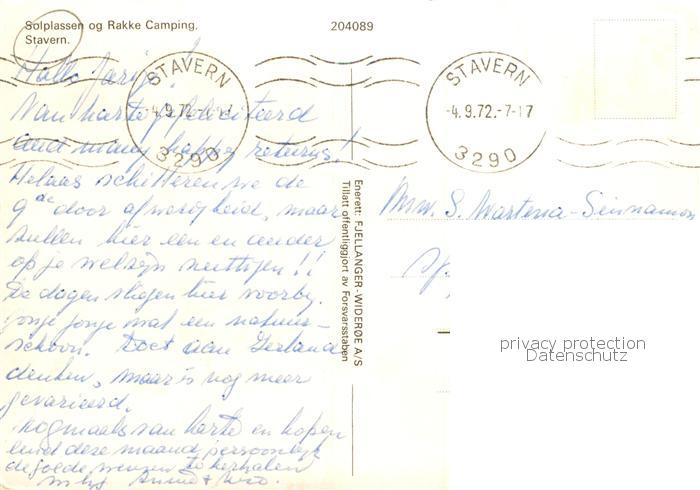 Solplassen og Rakke Camping,
Stavern.
204089
Hallo jarige!
Van harte gefeliciteerd
and many happy returns!
Helaas schitteren we de
9de door afwezigheid, maar
zullen hier een en ander
op je welzijn nuttigen!!
De dagen vliegen hier voorbij.
jonge jonge wat een natuur-
schoon. Doet aan Ierland
denken, maar is nog meer
gevarieerd.
Nogmaals van harte en hopen
eind deze maand persoonlijk
de goede wensen te herhalen
STAVERN
-4.9.72.-7-17
3290
STAVERN
-4.9.72.-7-17
3290
Enerett: FJELLANGER-WIDERØE A/S
Tillatt offentliggjort av Forsvarsstaben
Mw. S. Wartena-
privacy protection
Datenschutz